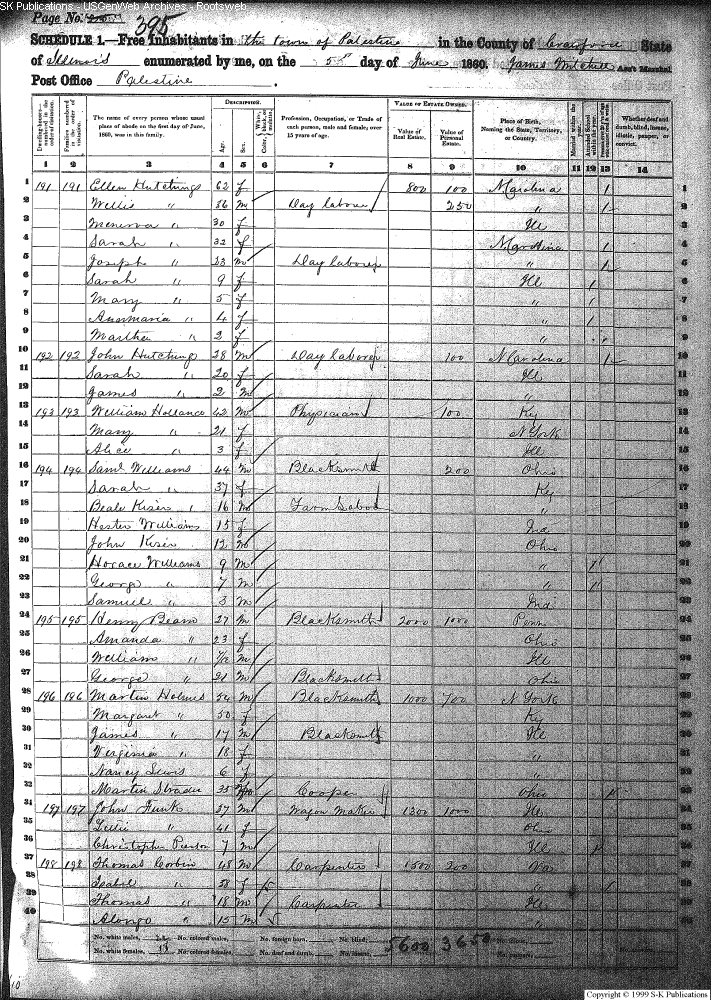 SK Publications - USGenWeb Archives - Rootsweb
Page No. 395
SCHEDULE 1.—Free Inhabitants in the town of Palestine in the County of Crawford State
of Illinois enumerated by me, on the 5th day of June 1860. James Mitchell Ass't Marshal
Post Office Palestine .
Dwelling-houses—numbered in the order of visitation.
Families numbered in the order of visitation.
The name of every person whose usual place of abode on the first day of June, 1860, was in this family.
DESCRIPTION.
Age.
Sex.
Color, White, black, or mulatto.
Profession, Occupation, or Trade of each person, male and female, over 15 years of age.
VALUE OF ESTATE OWNED.
Value of Real Estate.
Value of Personal Estate.
Place of Birth, Naming the State, Territory, or Country.
Married within the year.
Attended School within the year.
Whether deaf and dumb, blind, insane, idiotic, pauper, or convict.
1 2 3 4 5 6 7 8 9 10 11 12 13 14
1 191 191 Ellen Hutchings 62 f 800 100 N Carolina / 1
2 Willis " 36 m Day laborer 250 " / 2
3 Menerva " 30 f Ill 3
4 Sarah " 32 f N Carolina / 4
5 Joseph " 23 m Day laborer " / 5
6 Sarah " 9 f Ill / 6
7 Mary " 5 f " / 7
8 Annmaria " 4 f " / 8
9 Martha " 2 f " 9
10 192 192 John Hutchings 28 m Day laborer 100 N Carolina / 10
11 Sarah " 20 f Ill 11
12 James " 2 m " 12
13 193 193 William Hollanco 42 m Physician 100 Ky 13
14 Mary " 21 f N York 14
15 Alice " 3 f Ill 15
16 194 194 Saml Williams 44 m Blacksmith 200 Ohio 16
17 Sarah " 37 f Ky 17
18 Beale Kiser 16 m Farm Labor " 18
19 Hester Williams 15 f Ind 19
20 John Kiser 12 m Ohio 20
21 Horace Williams 9 m " / 21
22 George " 7 m " / 22
23 Samuel " 3 m Ind 23
24 195 195 Henry Beam 27 m Blacksmith 2000 1000 Penn 24
25 Amanda " 23 f Ohio 25
26 William " m Ill 26
27 George " 21 m Blacksmith Ohio 27
28 196 196 Martin Holmes 54 m Blacksmith 1000 700 N York 28
29 Margaret " 50 f Ky 29
30 James " 17 m Blacksmith Ill 30
31 Verginia " 18 f " 31
32 Nancy Lewis 6 f " 32
33 Martin Shrader 35 m Cooper Ohio 33
34 197 197 John Funk 37 m Wagon maker 1300 1000 Ill 34
35 " 41 f Ohio 35
36 Christopher Pierson 7 m Ill 36
37 198 198 Thomas Corbin 48 m Carpenter 1500 200 Va 37
38 Isabel " 58 f " 38
39 Thomas " 18 m Carpenter Ill 39
40 Alongo " 15 m " 40
No. white males, 22 No. colored males, No. foreign born, No. blind,
No. white females, 18 No. colored females, No. deaf and dumb, No. insane, 5600 3650
10
Copyright © 1999 S-K Publications